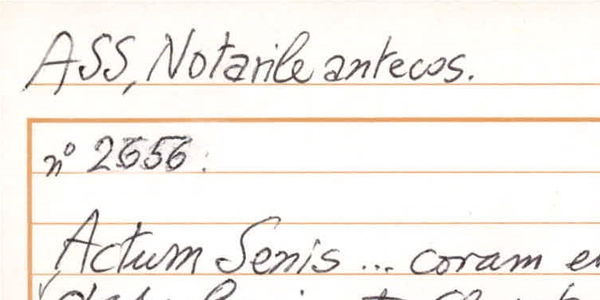 ASS, Notarile antecos.
nº 2656.
Actum Senis ... coram